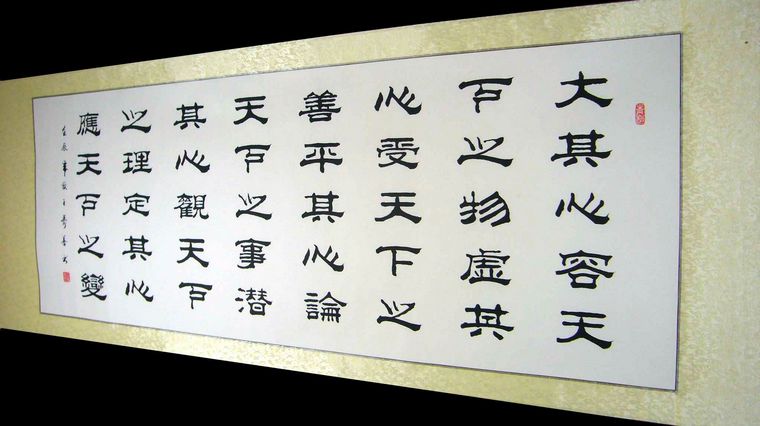 大其心容天
下之物虛其
心受天下之
善平其心論
天下之事潜
其心觀天下
之理定其心
應天下之變